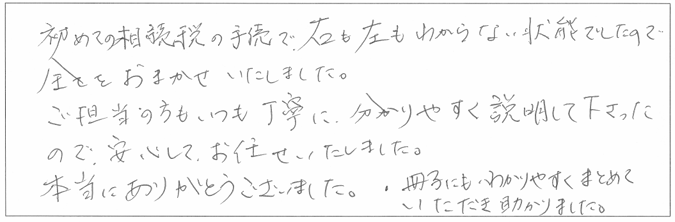 初めての相続税の手続で、右も左もわからない状態でしたので
全てをおまかせいたしました。
ご担当の方もいつも丁寧に、分かりやすく説明して下さった
ので、安心して、お任せいたしました。
本当にありがとうございました。・冊子にもわかりやすくまとめて
いただき助かりました。